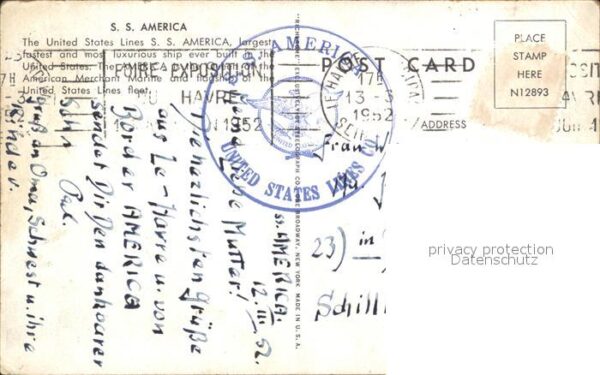 S. S. AMERICA
The United States Lines S. S. AMERICA, largest
fastest and most luxurious ship ever built in the
United States. The AMERICA is the
American Merchant Marine and flagship of the
United States Lines fleet.
FOIRE EXPOSITION
DU HAVRE
1952
S.S. AMERICA
UNITED STATES LINES CO.
POST CARD
PLACE
STAMP
HERE
N12893
LE HAVRE
17H
13-3
1952
SEINE
ADDRESS
BROADWAY, NEW YORK MADE IN U.S.A.
ss. AMERICA.
12. III. 52.
Liebe Mutter!
Die herzlichsten Grüße
aus Le-Havre u. von
Bord der AMERICA
sendet Dir Dein dankbarer
Sohn
Gruß an Oma, Schwest u. ihre
Kinder.
Frau
23) in
Schill
privacy protection
Datenschutz